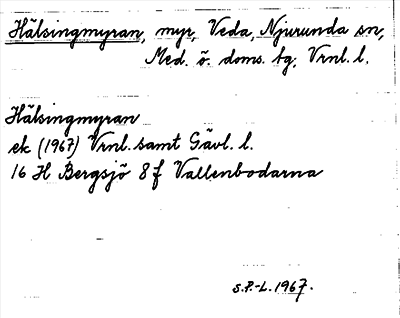 Hälsingmyran, myr, Veda, Njurunda sn,
Med. ö. doms. tg, Vrnl. l.
Hälsingmyran
ek (1967) Vrnl. samt Gävl. l.
16 H Bergsjö 8 f Vallenbodarna
S.P.-L. 1967.